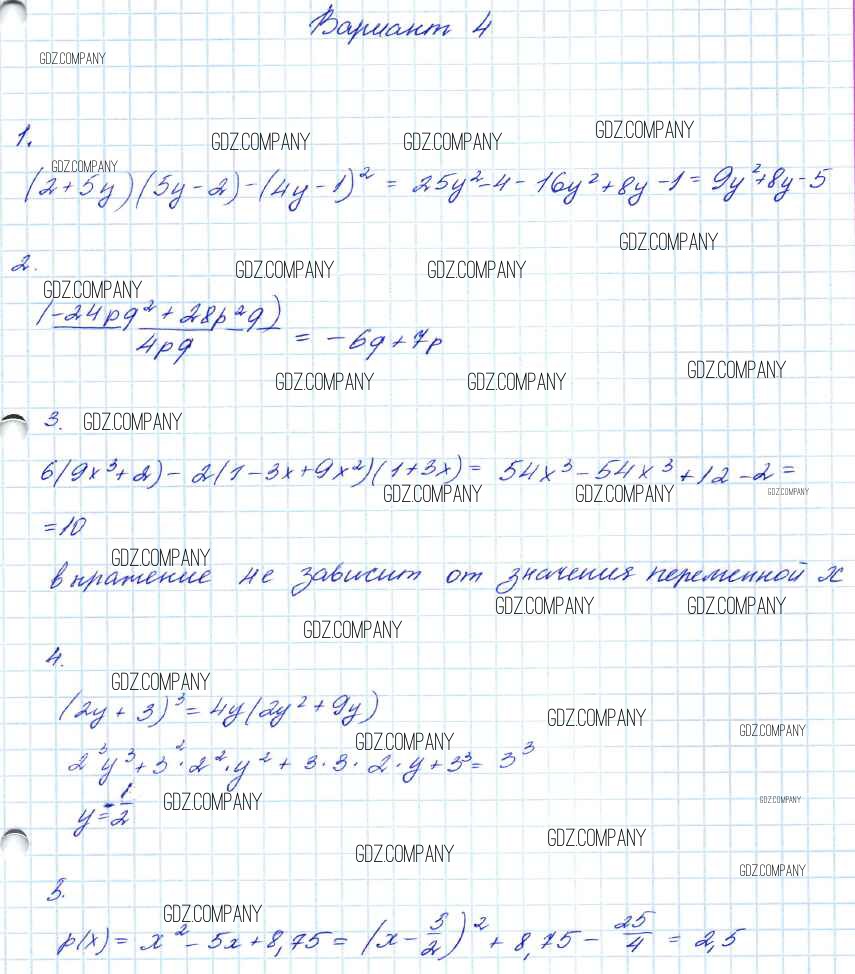 Вариант 4
GDZ.COMPANY
1.
GDZ.COMPANY GDZ.COMPANY GDZ.COMPANY
GDZ.COMPANY
(2+5y)(5y-2)-(4y-1)² = 25y²-4-16y²+8y-1=9y²+8y-5
GDZ.COMPANY
2.
GDZ.COMPANY GDZ.COMPANY
GDZ.COMPANY
(-24pq²+28p²q)
4pq = -6q+7p
GDZ.COMPANY GDZ.COMPANY GDZ.COMPANY
3. GDZ.COMPANY
6(9x³+2)-2(1-3x+9x²)(1+3x)= 54x³-54x³+12-2=
GDZ.COMPANY GDZ.COMPANY GDZ.COMPANY
=10
GDZ.COMPANY
выражение не зависит от значения переменной x
GDZ.COMPANY GDZ.COMPANY
GDZ.COMPANY
4.
GDZ.COMPANY
(2y+3)³=4y(2y²+9y)
GDZ.COMPANY GDZ.COMPANY
GDZ.COMPANY
2³y³+3²·2²·y²+3·3·2·y+3³= 3³
y=-1/2 GDZ.COMPANY GDZ.COMPANY
GDZ.COMPANY
GDZ.COMPANY
GDZ.COMPANY
5.
GDZ.COMPANY
p(x)= x²-5x+8,75=(x-5/2)²+8,75-25/4=2,5